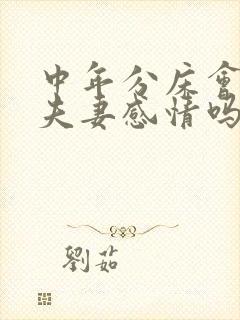 中年分床會
夫妻感情嗎
劉茹